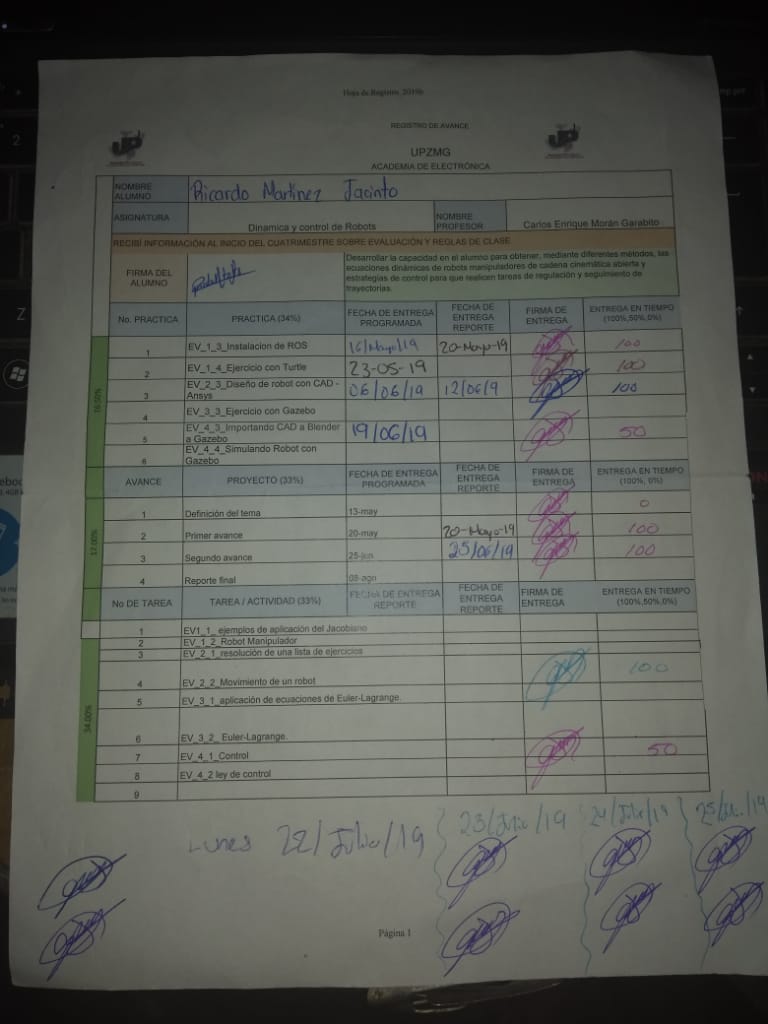 Hoja de Registro 2019b
REGISTRO DE AVANCE
UPZMG
ACADEMIA DE ELECTRÓNICA
NOMBRE ALUMNO Ricardo Martinez Jacinto
ASIGNATURA Dinamica y control de Robots NOMBRE PROFESOR Carlos Enrique Morán Garabito
RECIBÍ INFORMACIÓN AL INICIO DEL CUATRIMESTRE SOBRE EVALUACIÓN Y REGLAS DE CLASE
FIRMA DEL ALUMNO
Desarrollar la capacidad en el alumno para obtener, mediante diferentes métodos, las
ecuaciones dinámicas de robots manipuladores de cadena cinemática abierta y
estrategias de control para que realicen tareas de regulación y seguimiento de
trayectorias.
No. PRACTICA PRACTICA (34%) FECHA DE ENTREGA PROGRAMADA FECHA DE ENTREGA REPORTE FIRMA DE ENTREGA ENTREGA EN TIEMPO (100%,50%,0%)
1 EV_1_3_Instalacion de ROS 16/Mayo/19 20-Mayo-19 100
2 EV_1_4_Ejercicio con Turtle 23-05-19 100
3 EV_2_3_Diseño de robot con CAD - Ansys 06/06/19 12/06/9 100
4 EV_3_3_Ejercicio con Gazebo
5 EV_4_3_Importando CAD a Blender a Gazebo 19/06/19 50
6 EV_4_4_Simulando Robot con Gazebo
AVANCE PROYECTO (33%) FECHA DE ENTREGA PROGRAMADA FECHA DE ENTREGA REPORTE FIRMA DE ENTREGA ENTREGA EN TIEMPO (100%, 0%)
1 Definición del tema 13-may 0
2 Primer avance 20-may 20-Mayo-19 100
3 Segundo avance 25-jun 25/06/19 100
4 Reporte final 08-ago
17.00%
No DE TAREA TAREA / ACTIVIDAD (33%) FECHA DE ENTREGA REPORTE FECHA DE ENTREGA REPORTE FIRMA DE ENTREGA ENTREGA EN TIEMPO (100%,50%,0%)
1 EV1_1_ ejemplos de aplicación del Jacobiano
2 EV_1_2_Robot Manipulador
3 EV_2_1_resolución de una lista de ejercicios
4 EV_2_2_Movimiento de un robot 100
5 EV_3_1_aplicación de ecuaciones de Euler-Lagrange.
6 EV_3_2_ Euler-Lagrange.
7 EV_4_1_Control 50
8 EV_4_2 ley de control
9
34.00%
Lunes 22/Julio/19 23/Julio/19 24/Julio/19
Página 1